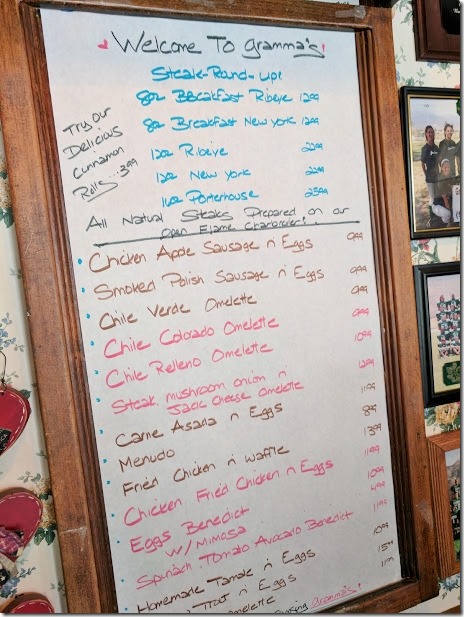 Welcome To Gramma's!
Steak-Round-up!
8oz Breakfast Ribeye 12.99
8oz Breakfast New York 12.99
12oz Ribeye 22.99
12oz New York 22.99
16oz Porterhouse 25.99
Try our
Delicious
Cinnamon
Rolls...3.99
All Natural Steaks Prepared on our
Open Flame Charbroiler!
Chicken Apple Sausage n' Eggs 9.99
Smoked Polish Sausage n' Eggs 9.99
Chile Verde Omelette 9.99
Chile Colorado Omelette 9.99
Chile Relleno Omelette 10.99
Steak, mushroom onion n
Jack Cheese Omelette 12.99
Carne Asada n' Eggs 11.99
Menudo 8.99
Fried Chicken n' waffle 13.99
Chicken Fried Chicken n Eggs 11.99
Eggs Benedict 10.99
w/ Mimosa 4.99
Spinach Tomato Avocado Benedict 11.99
Homemade Tamale n' Eggs 10.99
Trout n' Eggs 15.99
Omelette
Gramma's!